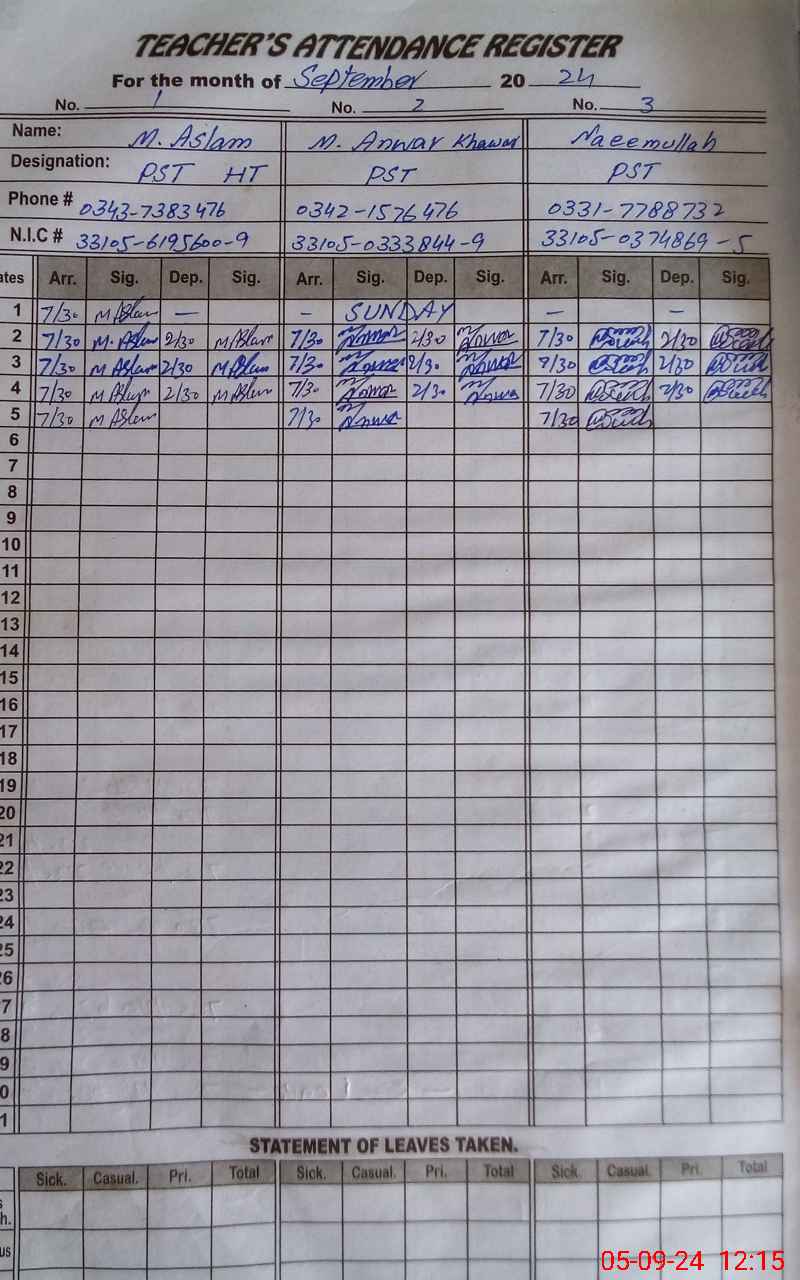 TEACHER'S ATTENDANCE REGISTER
For the month of September 2024
No. 1 No. 2 No. 3
Name: M. Aslam M. Anwar Khawar Naeemullah
Designation: PST HT PST PST
Phone # 0343-7383476 0342-1576476 0331-7788732
N.I.C # 33105-6195600-9 33105-0333844-9 33105-0374869-5
ates Arr. Sig. Dep. Sig. Arr. Sig. Dep. Sig. Arr. Sig. Dep. Sig.
1 7/30 M Aslam — — SUNDAY — —
2 7/30 M. Aslam 2/30 M Aslam 7/30 Anwar 2/30 Anwar 7/30 2/30
3 7/30 M Aslam 2/30 M Aslam 7/30 Anwar 2/30 Anwar 7/30 2/30
4 7/30 M Aslam 2/30 M Aslam 7/30 Anwar 2/30 Anwar 7/30 2/30
5 7/30 M Aslam 7/30 Anwar 7/30
6
7
8
9
10
11
12
13
14
15
16
17
18
19
20
21
22
23
24
25
26
7
8
9
0
1
STATEMENT OF LEAVES TAKEN.
Sick. Casual. Pri. Total Sick. Casual. Pri. Total Sick. Casual. Pri. Total
h.
us
05-09-24 12:15